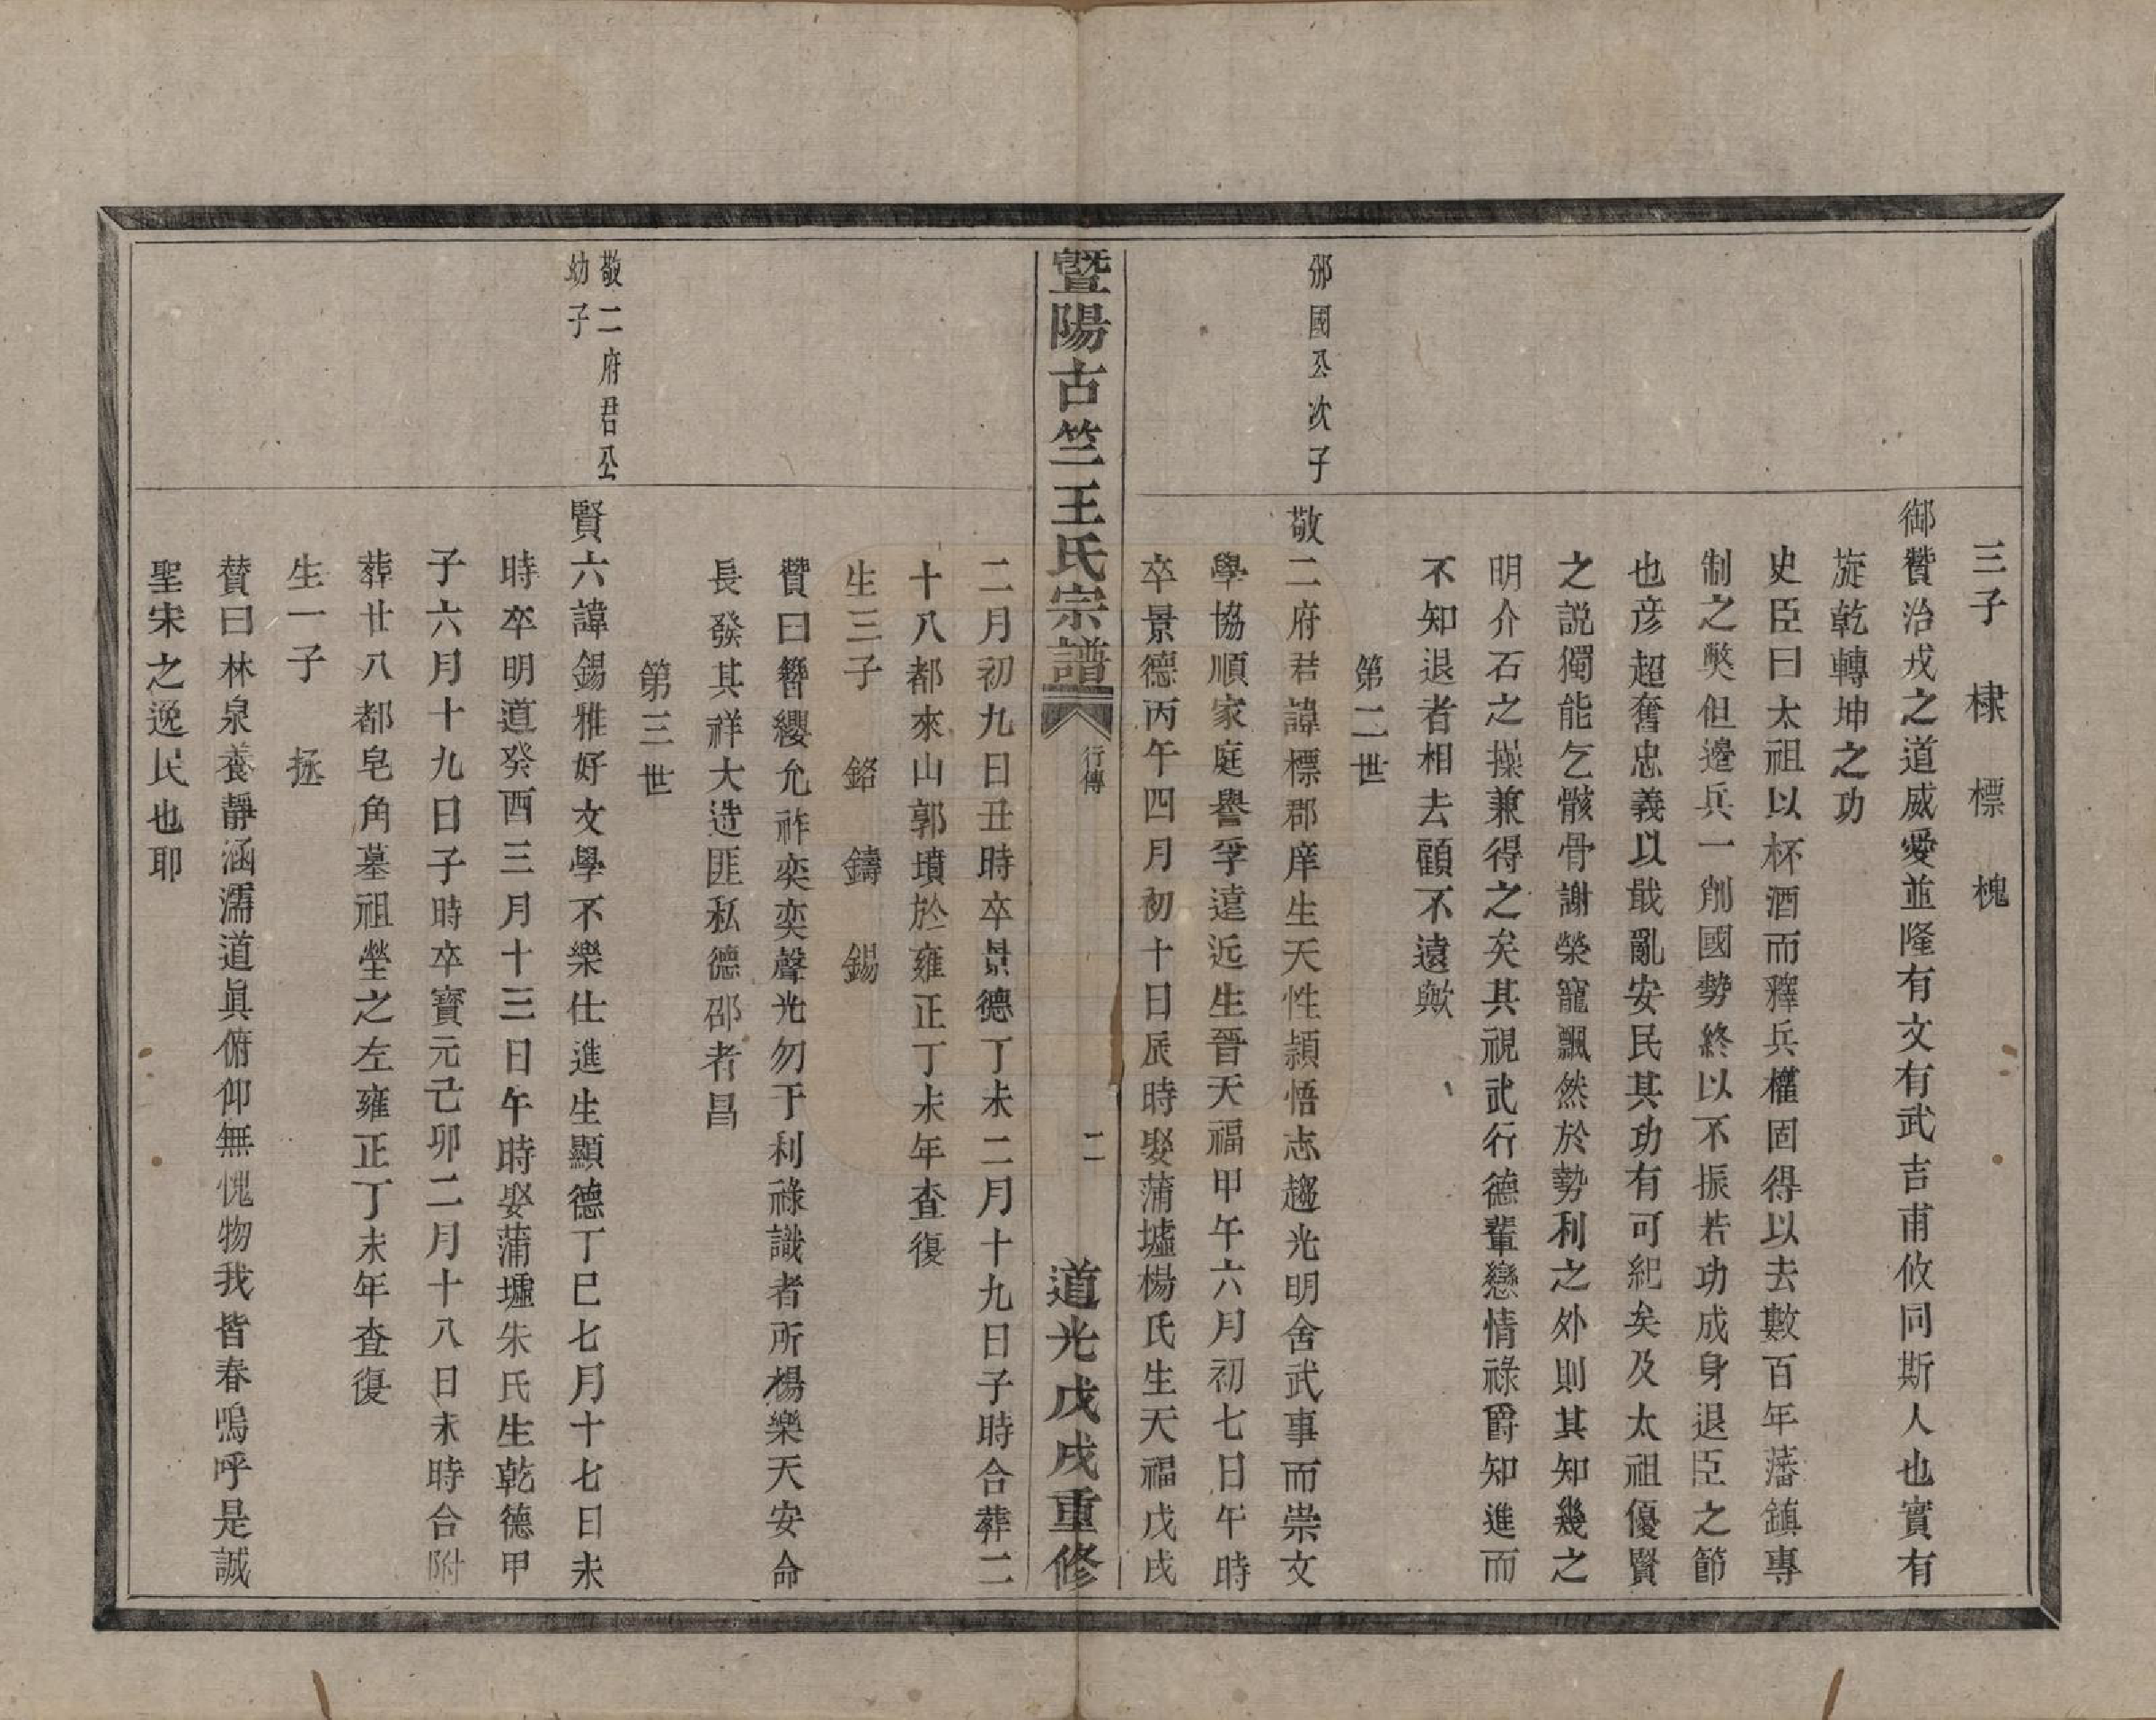 三子　棣　標　槐
御贊治戎之道威愛並隆有文有武吉甫攸同斯人也實有
旋乾轉坤之功
史臣曰太祖以杯酒而釋兵權固得以去數百年藩鎮專
制之獘但邊兵一削國勢終以不振若功成身退臣之節
也彦超奮忠義以戢亂安民其功有可紀矣及太祖優賢
之説獨能乞骸骨謝榮寵飄然於勢利之外則其知幾之
明介石之操兼得之矣其視武行德輩戀情祿爵知進而
不知退者相去顧不遠歟
第二世
邠國公次子
敬二府君諱標郡庠生天性頴悟志趨光明舍武事而崇文
學協順家庭譽孚遠近生晉天福甲午六月初七日午時
卒景德丙午四月初十日辰時娶蒲墟楊氏生天福戊戌
暨陽古竺王氏宗譜　行傳　二　道光戊戌重修
二月初九日丑時卒景德丁未二月十九日子時合葬二
十八都來山郭墳於雍正丁未年查復
生三子　鉻　鑄　錫
贊曰簪纓允祚奕奕聲光勿于利祿識者所楊樂天安命
長發其祥大造匪私德邵者昌
第三世
敬二府君公
幼子
賢六諱錫雅好文學不樂仕進生顯德丁巳七月十七日未
時卒明道癸酉三月十三日午時娶蒲墟朱氏生乾德甲
子六月十九日子時卒寶元己卯二月十八日未時合附
葬廿八都皂角墓祖塋之左雍正丁未年查復
生一子　拯
贊曰林泉養靜涵濡道眞俯仰無愧物我皆春嗚呼是誠
聖宋之逸民也耶